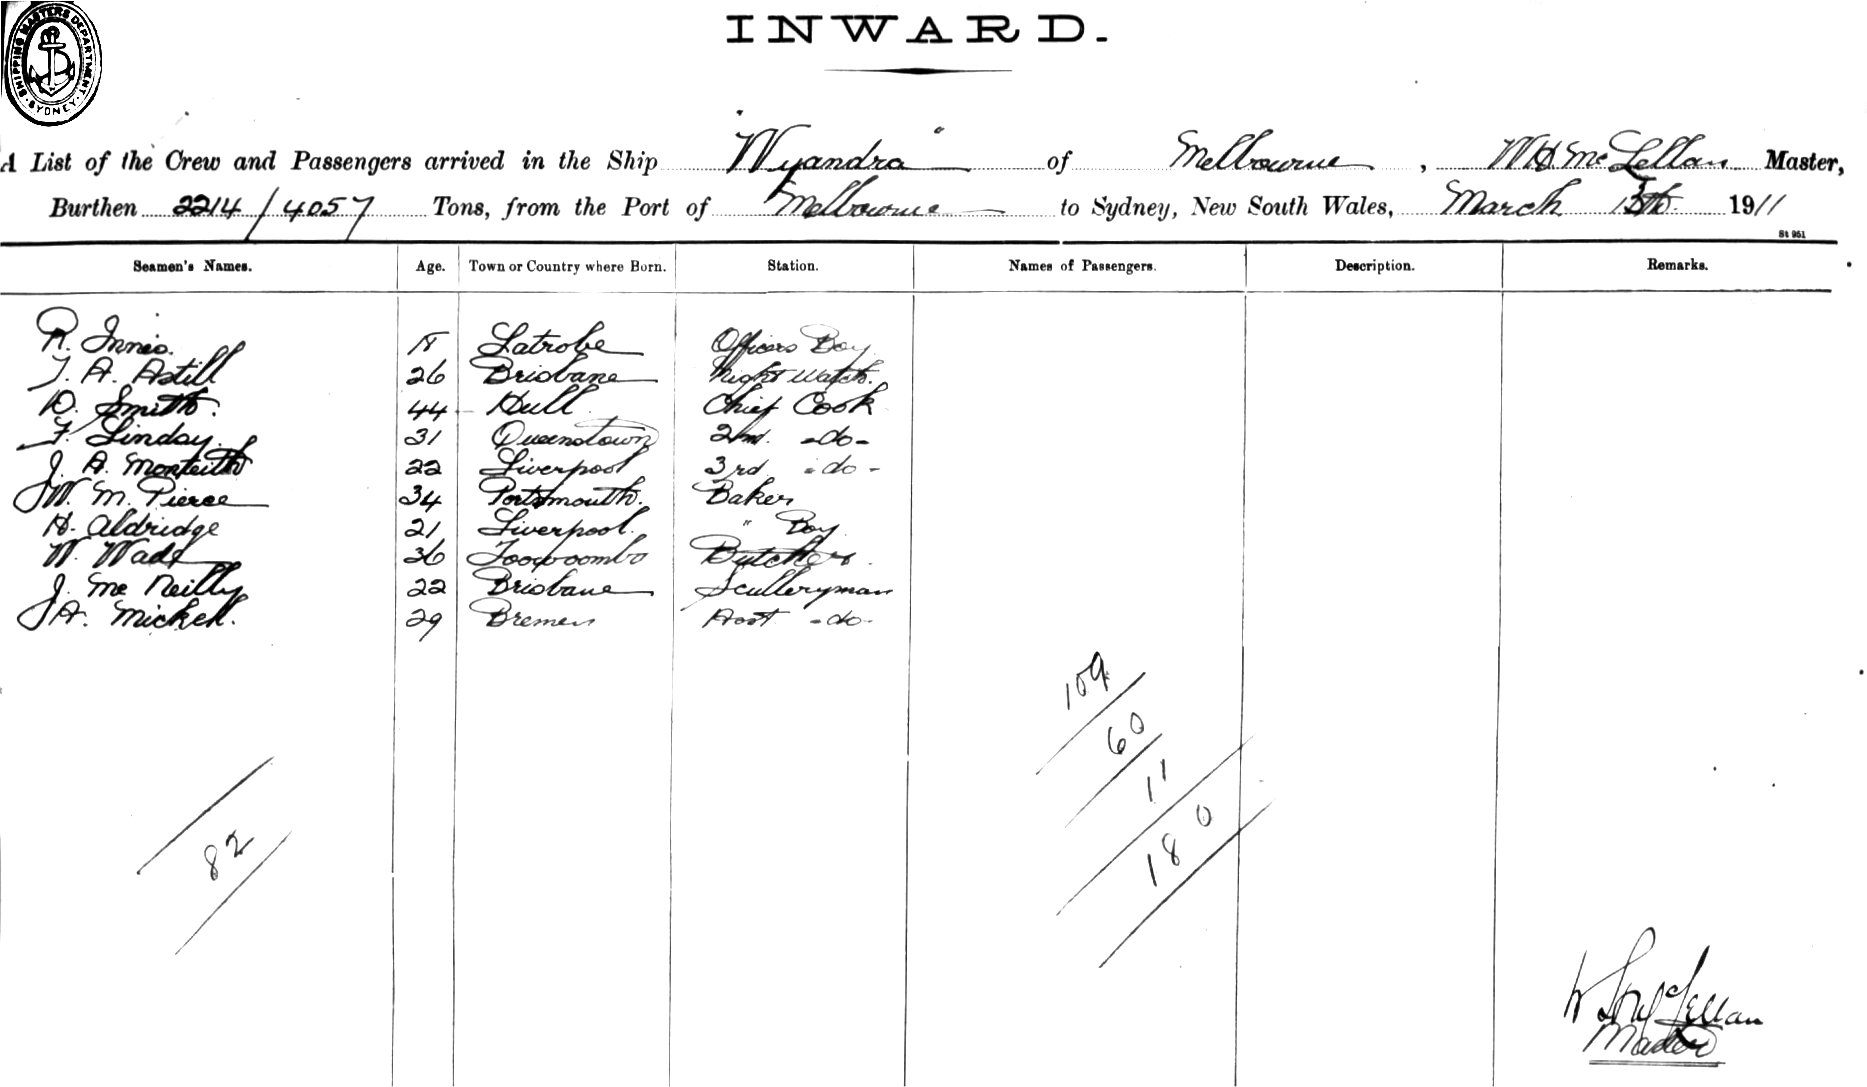 SHIPPING MASTERS DEPARTMENT
SYDNEY
INWARD.
A List of the Crew and Passengers arrived in the Ship "Wyandra" of Melbourne, W H McLellan Master,
Burthen 2214/4057 Tons, from the Port of Melbourne to Sydney, New South Wales, March 1911
St 951
Seamen's Names. Age. Town or Country where Born. Station. Names of Passengers. Description. Remarks.
R. Innis. 18 Latrobe Officers Boy
J. A. Astill 26 Brisbane Night Watch.
D. Smith. 44 Hull Chief Cook
F. Linday. 31 Queenstown 2nd. -do-
J. A. Monteith 22 Liverpool 3rd -do-
W. M. Pierce 34 Portsmouth. Baker
H. Aldridge 21 Liverpool. " Boy
W. Wade 36 Toowoomba Butcher.
J. McNeilly 22 Brisbane Sculleryman
A. Mickell. 29 Bremen Asst -do-
109
60
11
180
82
W H McLellan
Master